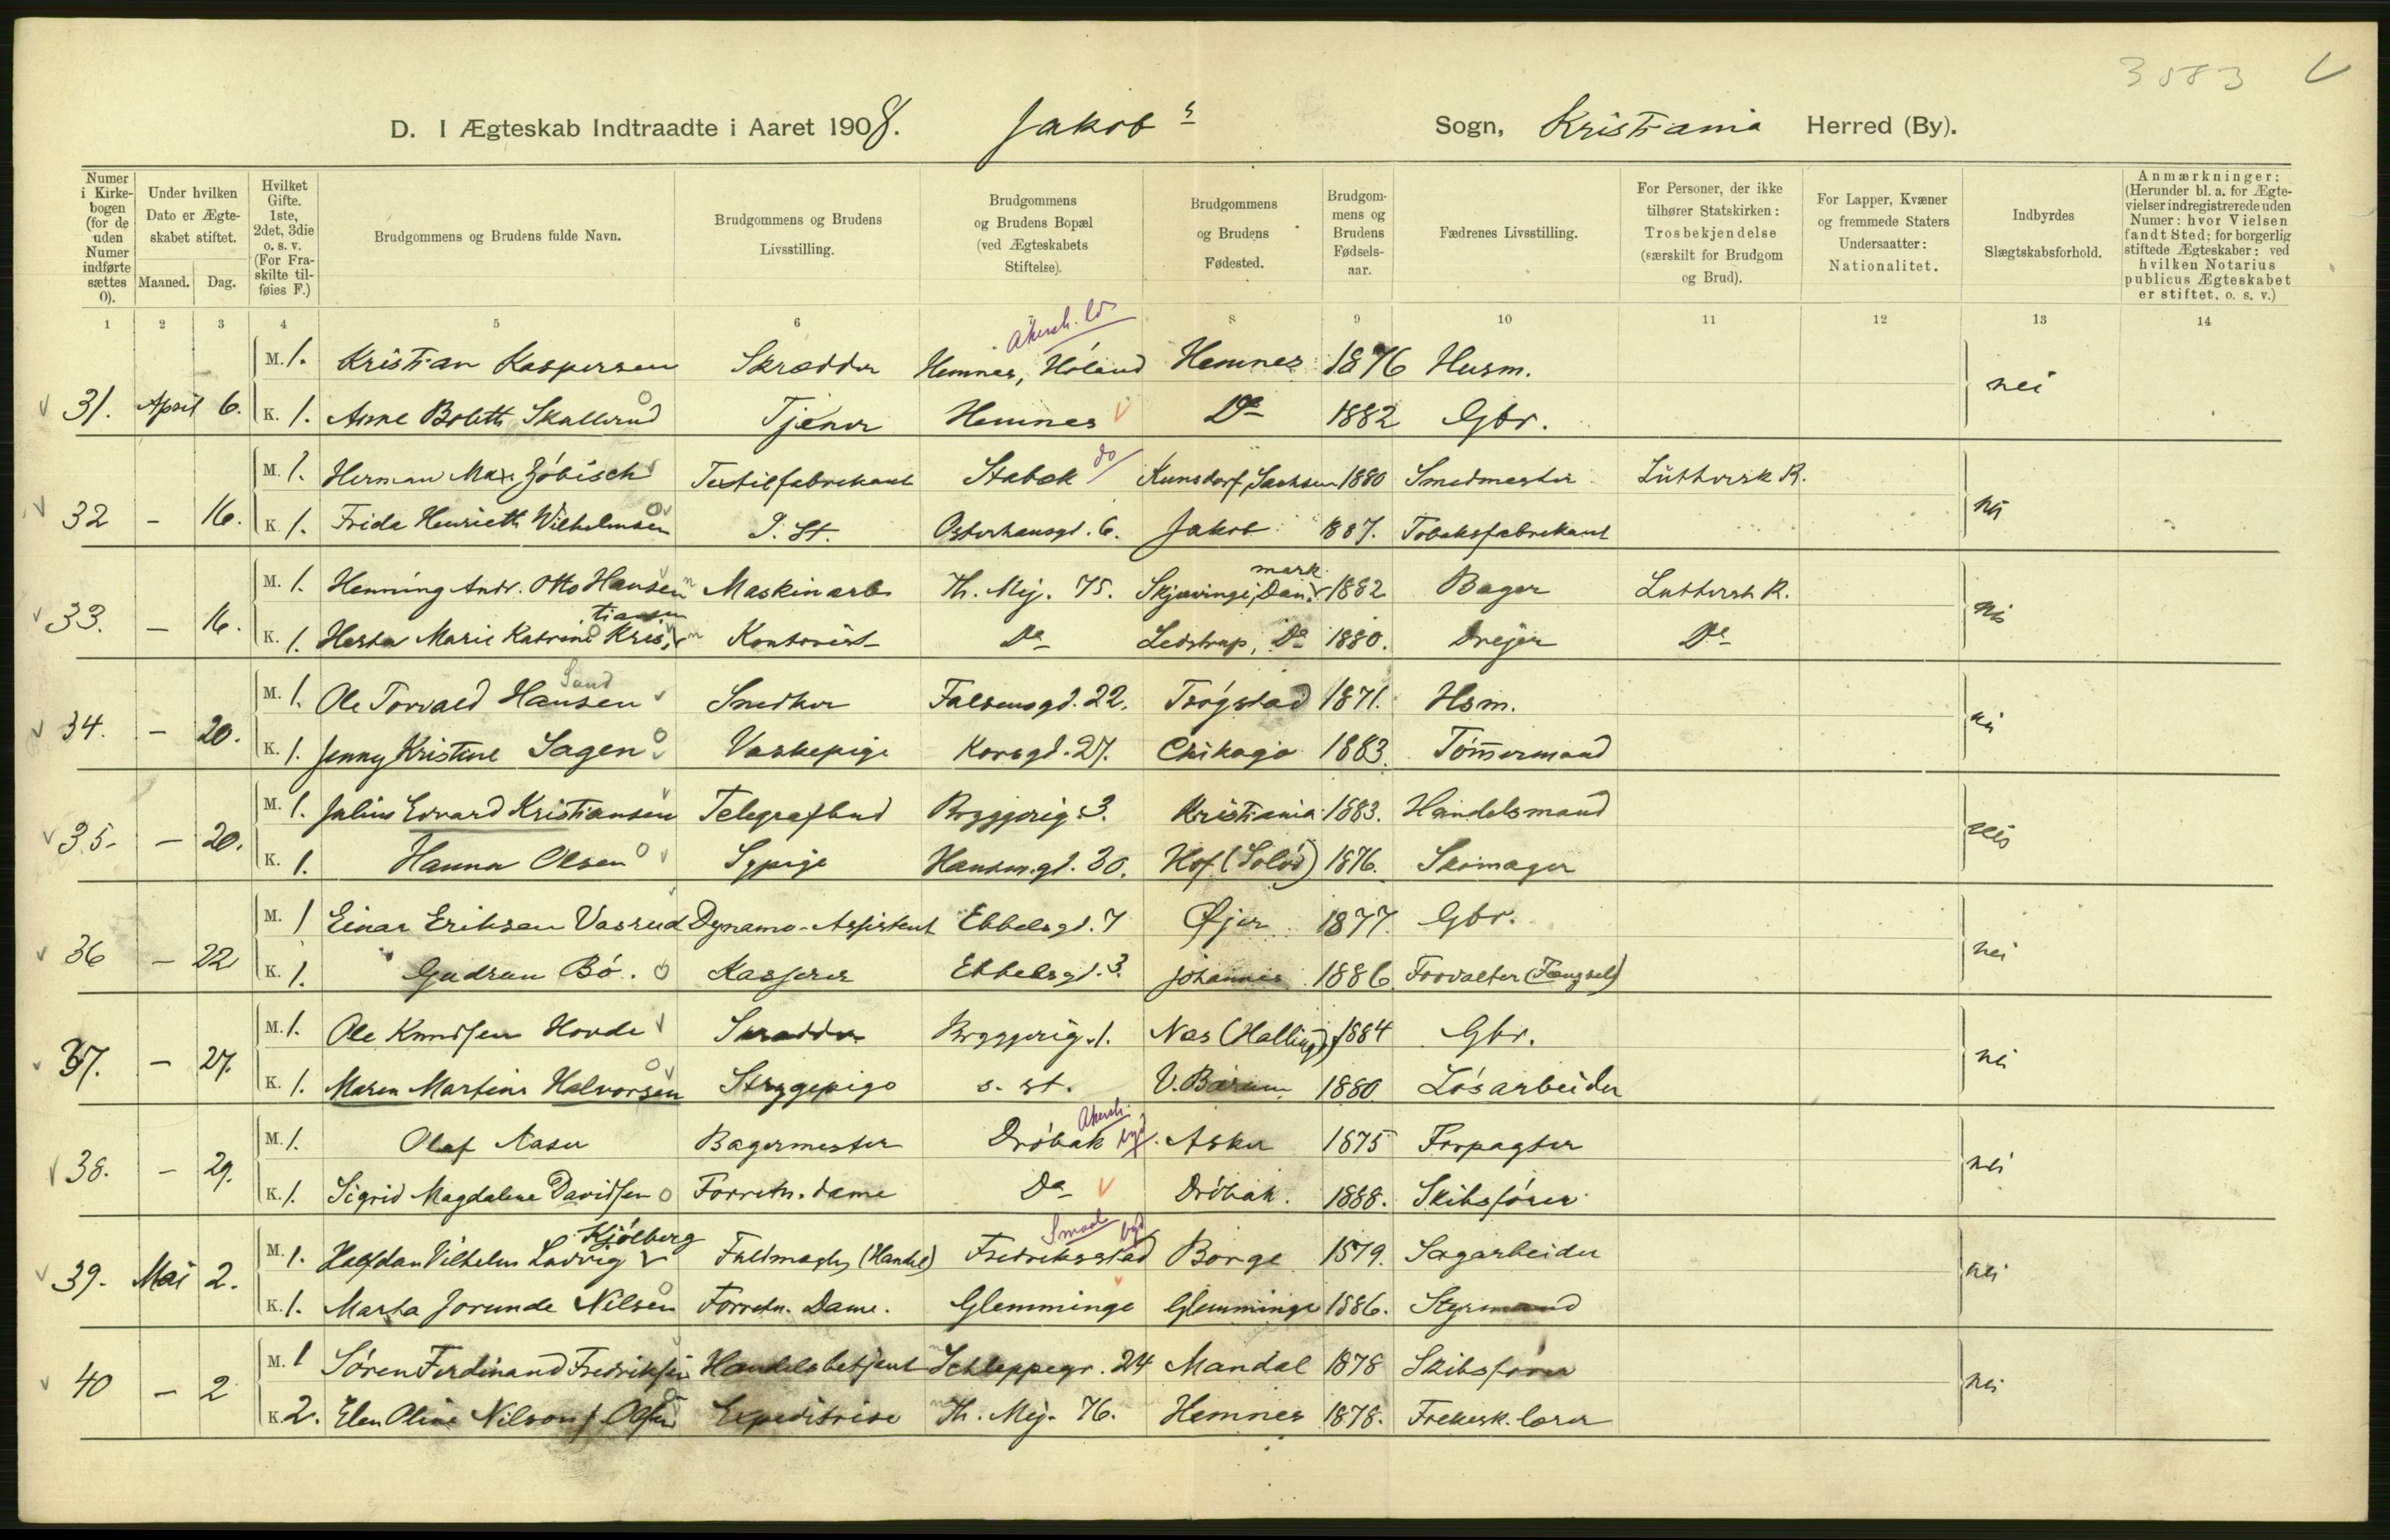 3583
D. I Ægteskab Indtraadte i Aaret 1908. Jakobs Sogn, Kristiania Herred (By).
Numer i Kirkebogen (for de uden Numer indførte sættes 0).
Under hvilken Dato er Ægteskabet stiftet.
Maaned. Dag.
Hvilket Gifte. 1ste, 2det, 3die o. s. v. (For Fraskilte tilføies F.)
Brudgommens og Brudens fulde Navn.
Brudgommens og Brudens Livsstilling.
Brudgommens og Brudens Bopæl (ved Ægteskabets Stiftelse).
Brudgommens og Brudens Fødested.
Brudgommens og Brudens Fødselsaar.
Fædrenes Livsstilling.
For Personer, der ikke tilhører Statskirken: Trosbekjendelse (særskilt for Brudgom og Brud).
For Lapper, Kvæner og fremmede Staters Undersaatter: Nationalitet.
Indbyrdes Slægtskabsforhold.
Anmærkninger: (Herunder bl. a. for Ægtevielser indregistrerede uden Numer: hvor Vielsen fandt Sted; for borgerlig stiftede Ægteskaber: ved hvilken Notarius publicus Ægteskabet er stiftet. o. s. v.)
1 2 3 4 5 6 8 9 10 11 12 13 14
Akersh. ld
M. 1. Kristian Kaspersen Skrædder Hemnes, Höland Hemnes 1876 Husm.
31. April 6. K. 1. Anne Boleth Skallerud Tjener Hemnes Do 1882 Gbr. nei
do
M. 1. Herman Max Jöbisch Textilfabrikant Stabæk Kunsdorf, Sachsen 1880 Smedmester Luthersk R.
32 - 16. K. 1. Frida Henriette Wilhelmsen S. St. Osterhausgd. 6. Jakob 1887. Tobaksfabrikant nei
mark
M. 1. Henning Andr. Otto Hansen Maskinarb Th. Mej. 75. Skjævinge, Dan 1882 Bager Luthersk R.
tiansen
33. - 16. K. 1. Herta Marie Katrine Kris Kontorist Do Ledstrup, Do 1880. Drejer Do nei
Sand
M. 1. Ole Torvald Hansen Snedker Falsensgd. 22. Trögstad 1871. Hsm.
34. - 20. K. 1. Jenny Kristine Sagen Vaskepige Korsgd. 27. Chikago 1883. Tömmermand nei
M. 1. Julius Edvard Kristiansen Telegrafbud Byggerig. 3. Kristiania 1883. Handelsmand
35. - 20. K. 1. Hanna Olsen Sypige Hausm.gd. 30. Hof (Solör) 1876. Skomager nei
M. 1 Einar Eriksen Vasrud Dynamo-Assistent Ebbelsgd. 7 Øjer 1877. Gbr.
36 - 22 K. 1. Gudrun Bö. Kasserer Ebbelsgd. 3. Johannes 1886 Forvalter (Fængsels) nei
M. 1. Ole Knudsen Hovde Skrædder Byggerig. 1. Nes (Hallingd) 1884 Gbr.
37. - 27. K. 1. Maren Martine Halvorsen Strygepige s. st. V. Bærum 1880 Lösarbeider nei
Akersh. bgd
M. 1. Olaf Aaser Bagermester Dröbak Asker 1875 Forpagter
38. - 29. K. 1. Sigrid Magdalene Davidsen Forretn. dame Do Dröbak. 1888. Skibsförer nei
Kjölberg Smaal bgd
M. 1. Halfdan Vilhelm Ludvig Fuldmægtig (Handel) Fredriksstad Borge 1879. Sagarbeider
39. Mai 2. K. 1. Marta Jorunde Nilsen Forretn. Dame. Glemminge Glemminge 1886. Styrmand nei
M. 1 Sören Ferdinand Fredriksen Handelsbetjent Schleppegr. 24 Mandal 1878 Skibsförer
40 - 2 K. 2. Elen Oline Nilson f. Olsen Expeditrise Th. Mej. 76. Hemnes 1878. Frekesk. lærer nei